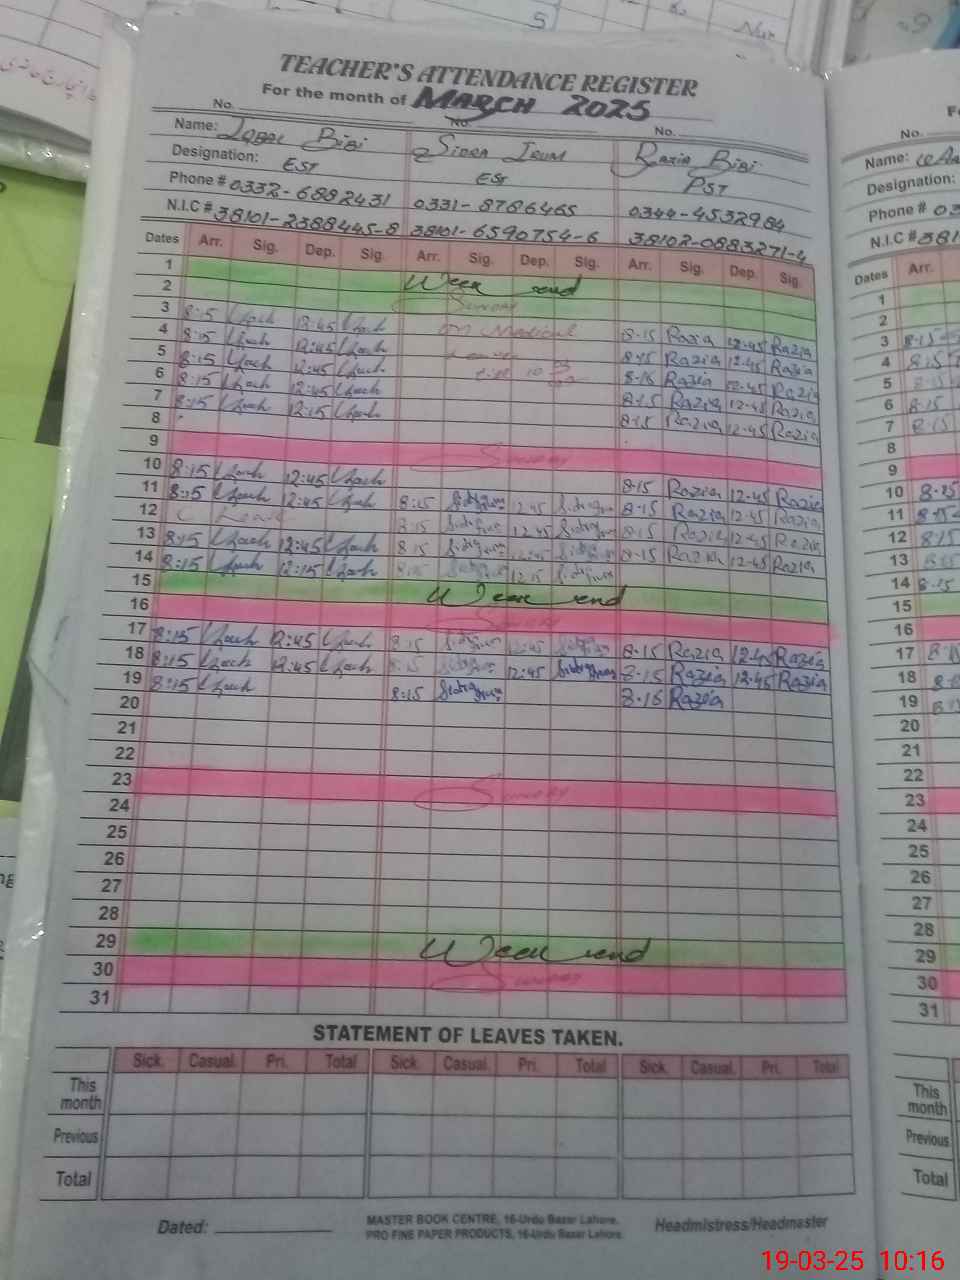 TEACHER'S ATTENDANCE REGISTER
For the month of MARCH 2025
No. No. No.
Name: Iqbal Bibi Sidra Irum Razia Bibi
Designation: EST EST PST
Phone # 0332-6882431 0331-8786465 0344-4532984
N.I.C # 38101-2388445-8 38101-6590754-6 38102-0883271-4
Dates Arr. Sig. Dep. Sig. Arr. Sig. Dep. Sig. Arr. Sig. Dep. Sig.
1
2 Week end
Sunday
3 8:15 12:45 on Medical 8-15 Razia 12-45 Razia
4 8:15 12:45 Leave 8-15 Razia 12-45 Razia
5 8:15 12:45 till 10 8-15 Razia 12-45 Razia
6 8:15 12:45 8-15 Razia 12-45 Razia
7 8:15 12:15 8-15 Razia 12-45 Razia
8
9 Sunday
10 8:15 12:45 8-15 Razia 12-45 Razia
11 8:15 12:45 8:15 12:45 8-15 Razia 12-45 Razia
12 Leave 8:15 12:45 8-15 Razia 12-45 Razia
13 8:15 12:45 8:15 12:45 8-15 Razia 12-45 Razia
14 8:15 12:15 8:15 12:15
15 Week end
16 Sunday
17 8:15 12:45 8:15 12:45 8-15 Razia 12-45 Razia
18 8:15 12:45 8:15 12:45 8-15 Razia 12-45 Razia
19 8:15 8:15 8-16 Razia
20
21
22
23 Sunday
24
25
26
27
28
29 Week end
30 Sunday
31
STATEMENT OF LEAVES TAKEN.
Sick. Casual. Pri. Total Sick. Casual. Pri. Total Sick. Casual. Pri. Total
This month
Previous
Total
Dated:
MASTER BOOK CENTRE, 16-Urdu Bazar Lahore.
PRO FINE PAPER PRODUCTS, 16-Urdu Bazar Lahore.
Headmistress/Headmaster
No.
Name:
Designation:
Phone # 03
N.I.C # 381
Dates Arr.
1
2
3 8-15
4 8:15
5 8:15
6 8-15
7 8-15
8
9
10 8-15
11 8-15
12 8:15
13 8:15
14 8-15
15
16
17 8-15
18
19 8-15
20
21
22
23
24
25
26
27
28
29
30
31
This month
Previous
Total
19-03-25 10:16